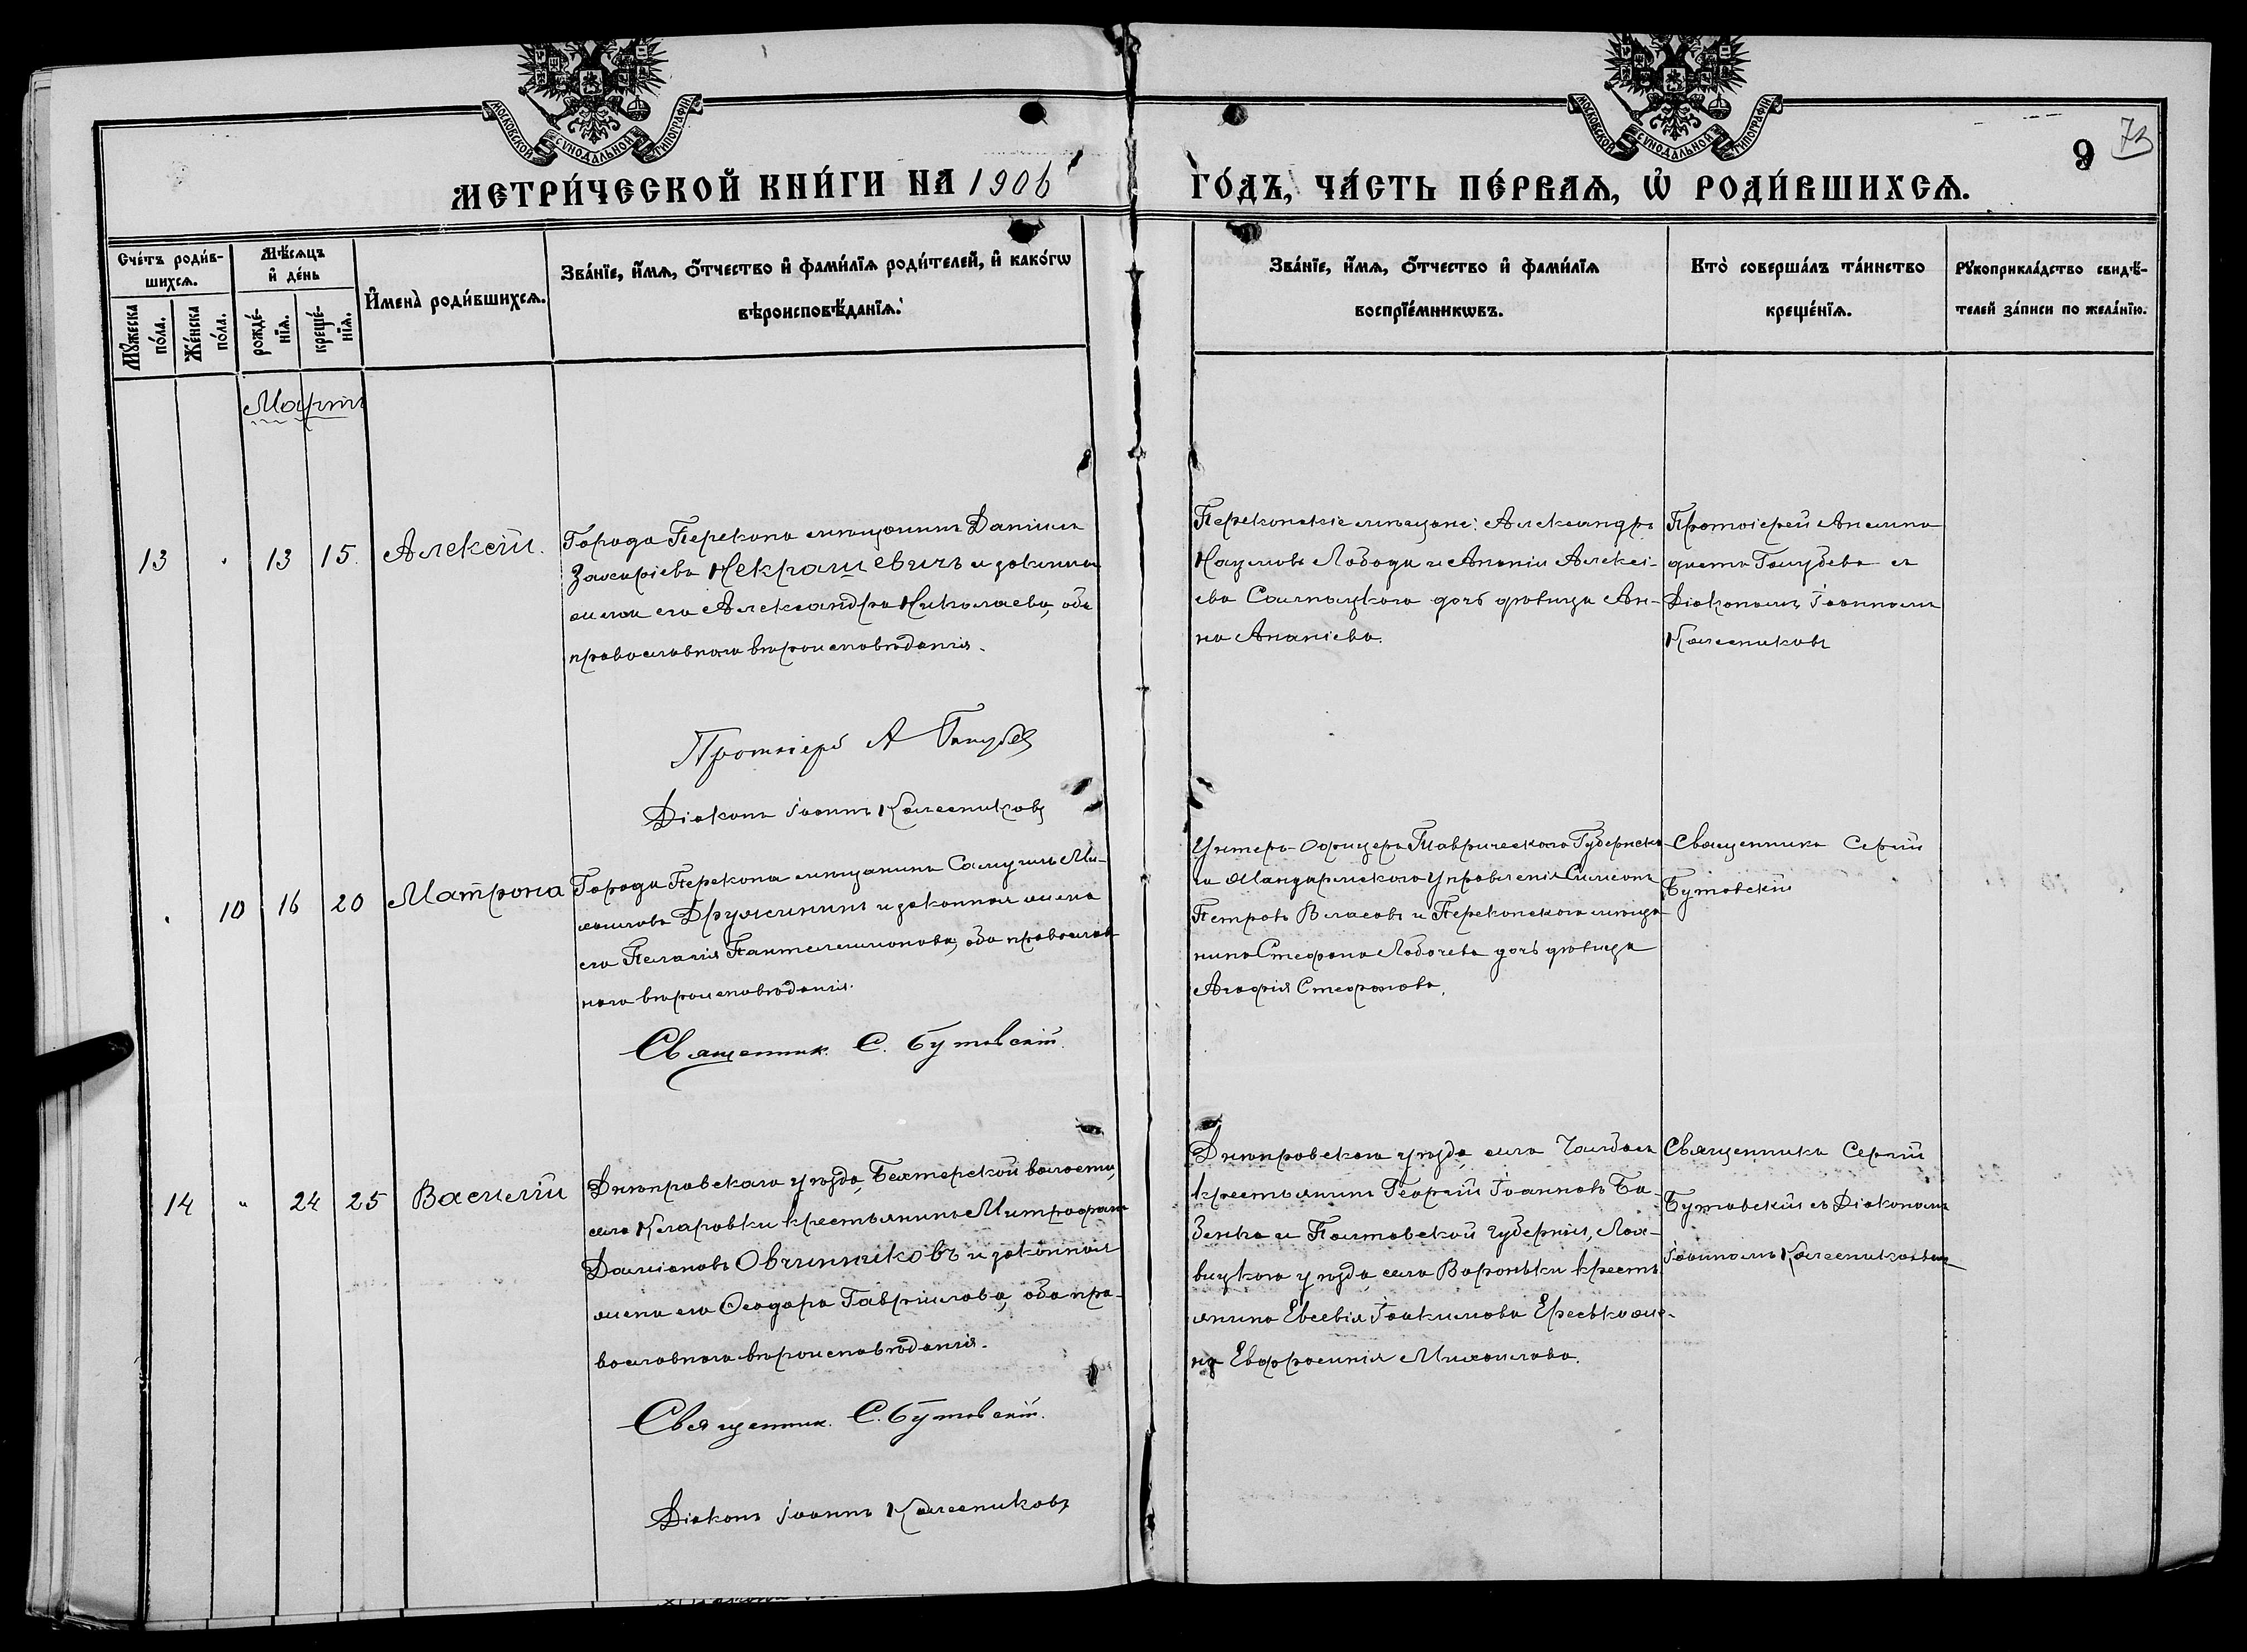 МОСКОВСКОЙ СУНОДАЛЬНОЙ ТИПОГРАФІИ
МОСКОВСКОЙ СУНОДАЛЬНОЙ ТИПОГРАФІИ
9 73
МЕТРИ́ЧЕСКОЙ КНИ́ГИ НА 1906
ГО́ДЪ, ЧА́СТЬ ПЕ́РВАѦ, Ѡ҆ РОДИ́ВШИХСѦ.
Сче́тъ роди́в-
шихсѧ.
Мꙋ́жеска по́ла.
Же́нска по́ла.
Мѣ́сѧцъ
и҆ де́нь
рожде́-
нїѧ.
креще́-
нїѧ.
И҆мена̀ роди́вшихсѧ.
Зва́нїе, и҆́мѧ, ѻ҆́тчество и҆ фами́лїѧ роди́телей, и҆ како́гѡ
вѣроисповѣ́данїѧ.
Зва́нїе, и҆́мѧ, ѻ҆́тчество и҆ фами́лїѧ
воспрїе́мникѡвъ.
Кто̀ соверша́лъ та́инство
креще́нїѧ.
Рꙋкоприкла́дство свидѣ́-
телей за́писи по жела́нїю.
Мартъ
13 " 13 15. Алексѣй.
Города Перекопа мѣщанинъ Даніилъ
Захаріевъ Некрашевичъ и законная
жена его Александра Николаева, оба
православнаго вѣроисповѣданія.
Протоіерей А Голубевъ
Діаконъ Іоаннъ Колесниковъ
Перекопскіе мѣщане: Александръ
Наумовъ Лобода и Ананіи Алексі-
ева Салтыцкого дочь дѣвица Ан-
на Ананіева.
Протоіерей
Голубевъ съ
Діакономъ Іоанномъ
Колесниковъ
" 10 16 20 Матрона
Города Перекопа мѣщанинъ Самуилъ Ми-
хаиловъ Дружининъ и законная жена
его Пелагія Пантелеимонова, оба православ-
наго вѣроисповѣданія.
Священник. С. Бутовскій.
Унтеръ-Офицеръ Таврическаго Губернска-
го Жандармскаго Управленія Симеонъ
Петровъ Власовъ и Перекопскаго мѣща-
нина Стефана Лобачева дочь дѣвица
Агафія Стефанова.
Священникъ Сергій
Бутовскій
14 " 24 25 Василій
Днѣпровскаго уѣзда, Бехтерской волости,
села Келаровки крестьянинъ Митрофанъ
Даміановъ Овчинниковъ и законная
жена его Ѳеодора Гавріилова, оба пра-
вославнаго вѣроисповѣданія.
Священник. С. Бутовскій.
Діаконъ Іоаннъ Колесниковъ
Днѣпровскаго уѣзда, села Чалбасъ
крестьянинъ Георгій Іоанновъ Ба-
бенко и Полтавской губерніи, Лох-
вицкаго уѣзда, села Вороньки кресть-
янина Евсевія Іоакимова Ереська же-
на Евфросинія Михаилова.
Священникъ Сергій
Бутовскій съ Діакономъ
Іоанномъ Колесниковымъ